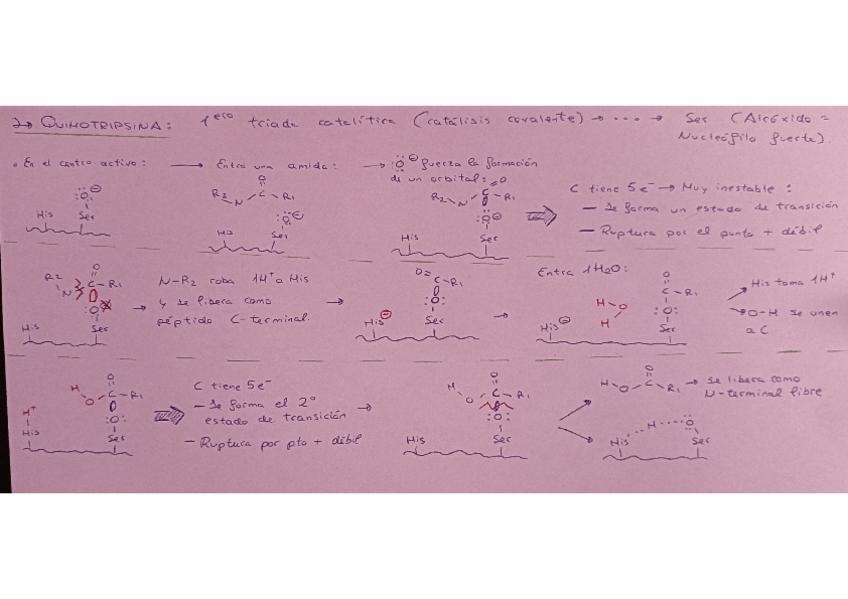 2→ QUIMOTRIPSINA: 1ero triada catalítica (catálisis covalente) → ... → Ser (Alcóxido =
Nucleófilo fuerte).
• En el centro activo: → Entra una amida: → :Ö:⊖ fuerza la formación
de un orbital:
:Ö:⊖
His Ser
O
R2 N C R1
:Ö:⊖
Ser
O
R2 N C R1
:Ö:⊖
His Ser
C tiene 5e⁻ → Muy inestable:
— Se forma un estado de transición
— Ruptura por el punto + débil
R2 N
O
C - R1
O
His Ser
→ N-R2 roba 1H⁺ a His
y se libera como
péptido C-terminal.
→
O = C - R1
:O:
His⊖ Ser
→
Entra 1H2O:
H - O
H
O
C - R1
:O:
His⊖ Ser
His toma 1H⁺
O-H se unen
a C
H⁺
His
H O
O
C - R1
:O:
Ser
C tiene 5e⁻
— Se forma el 2º
estado de transición
— Ruptura por pto + débil
→
H O
O
C - R1
:O:
His Ser
H - O - C - R1
O
→ se libera como
N-terminal libre
His H Ö:
Ser